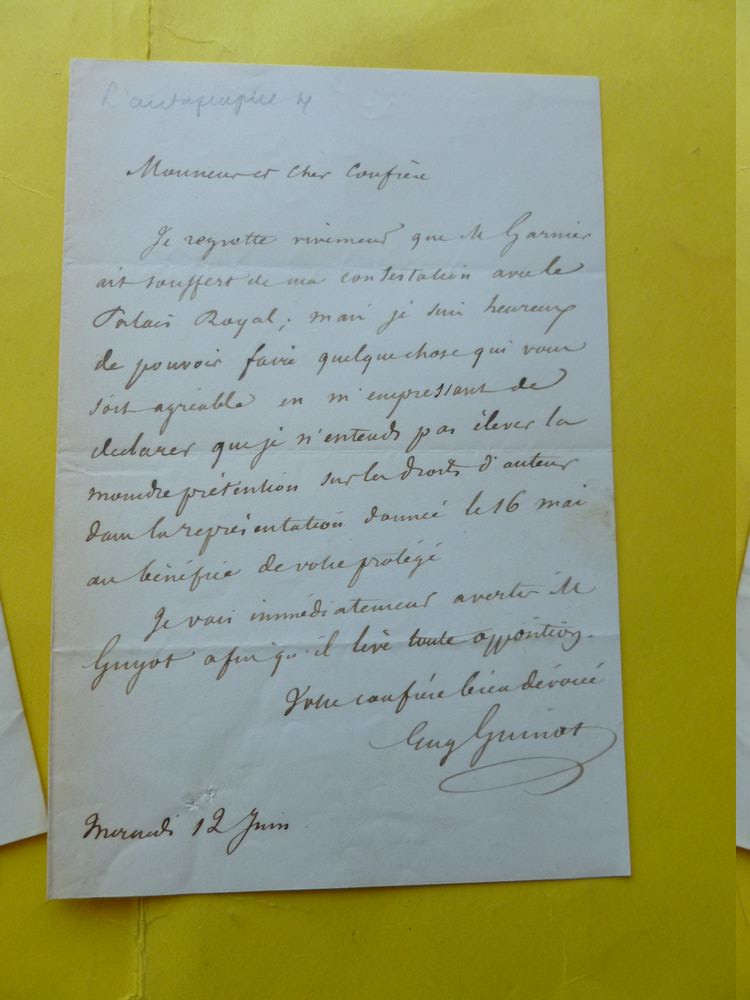 L'autographe
Monsieur et Cher Confrère
Je regrette vivement que M Garnier
ait souffert de ma contestation avec le
Palais Royal; mais je suis heureux
de pouvoir faire quelque chose qui vous
soit agréable en m'empressant de
declarer que je n'entends pas élever la
moindre prétention sur les droits d'auteur
dans la représentation donnée le 16 mai
au bénéfice de votre protégé
Je vais immédiatement avertir M
Guyot afin qu'il lève toute opposition.
Votre confrère bien dévoué
Guy Guinot
Mercredi 12 Juin